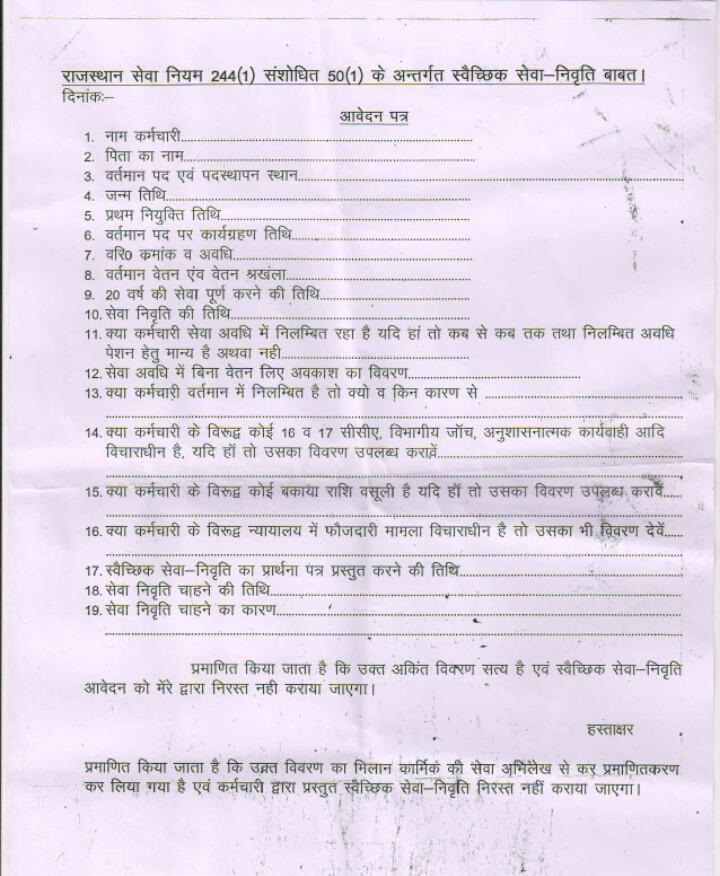 राजस्थान सेवा नियम 244(1) संशोधित 50(1) के अन्तर्गत स्वैच्छिक सेवा–निवृति बाबत।
दिनांकः–
आवेदन पत्र
1. नाम कर्मचारी..............................
2. पिता का नाम..............................
3. वर्तमान पद एवं पदस्थापन स्थान..............................
4. जन्म तिथि..............................
5. प्रथम नियुक्ति तिथि..............................
6. वर्तमान पद पर कार्यग्रहण तिथि..............................
7. वरि0 क्रमांक व अवधि..............................
8. वर्तमान वेतन एंव वेतन श्रखंला..............................
9. 20 वर्ष की सेवा पूर्ण करने की तिथि..............................
10. सेवा निवृति की तिथि..............................
11. क्या कर्मचारी सेवा अवधि में निलम्बित रहा है यदि हां तो कब से कब तक तथा निलम्बित अवधि
पेशन हेतु मान्य है अथवा नही..............................
12. सेवा अवधि में बिना वेतन लिए अवकाश का विवरण..............................
13. क्या कर्मचारी वर्तमान में निलम्बित है तो क्यो व किन कारण से ..............................
..............................
14. क्या कर्मचारी के विरूद्व कोई 16 व 17 सीसीए, विभागीय जॉच, अनुशासनात्मक कार्यवाही आदि
विचाराधीन है, यदि हॉं तो उसका विवरण उपलब्ध करावें..............................
..............................
15. क्या कर्मचारी के विरूद्व कोई बकाया राशि वसूली है यदि हॉ तो उसका विवरण उपलब्ध करावें.....
..............................
16. क्या कर्मचारी के विरूद्व न्यायालय में फौजदारी मामला विचाराधीन है तो उसका भी विवरण देवें.....
..............................
17. स्वैच्छिक सेवा–निवृति का प्रार्थना पत्र प्रस्तुत करने की तिथि..............................
18. सेवा निवृति चाहने की तिथि..............................
19. सेवा निवृति चाहने का कारण..............................
..............................
प्रमाणित किया जाता है कि उक्त अकिंत विवरण सत्य है एवं स्वैच्छिक सेवा–निवृति
आवेदन को मेरे द्वारा निरस्त नही कराया जाएगा।
हस्ताक्षर
प्रमाणित किया जाता है कि उक्त विवरण का मिलान कार्मिक की सेवा अभिलेख से कर प्रमाणितकरण
कर लिया गया है एवं कर्मचारी द्वारा प्रस्तुत स्वैच्छिक सेवा–निवृति निरस्त नहीं कराया जाएगा।